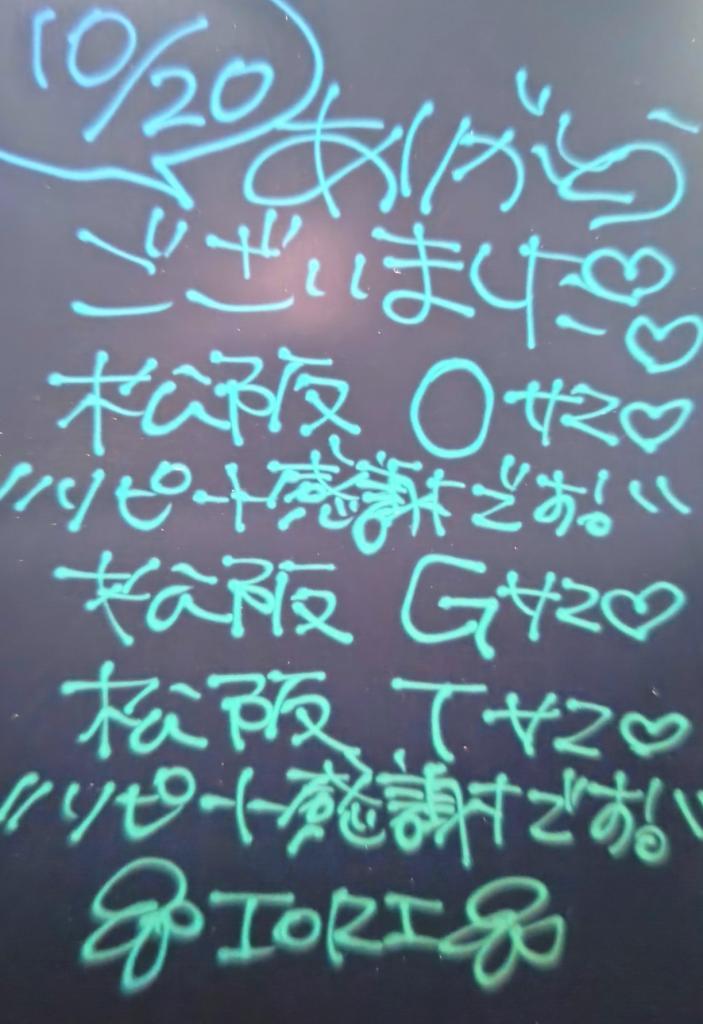 10/20
ありがとう
ございました♡♡
松阪 Oサマ♡
〃リピート感謝です!〃
松阪 Gサマ♡
松阪 Tサマ♡
〃リピート感謝です!〃
IORI